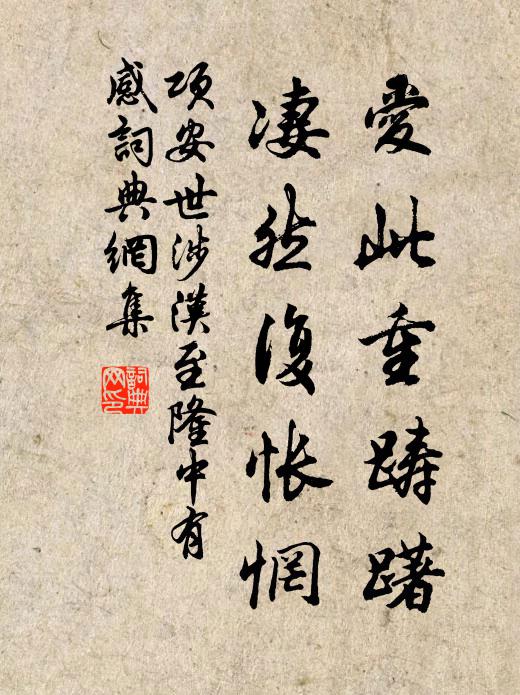 愛此重躊躇
凄然復悵惘
項安世涉漢至隆中有
感詞典網集
詞典網印